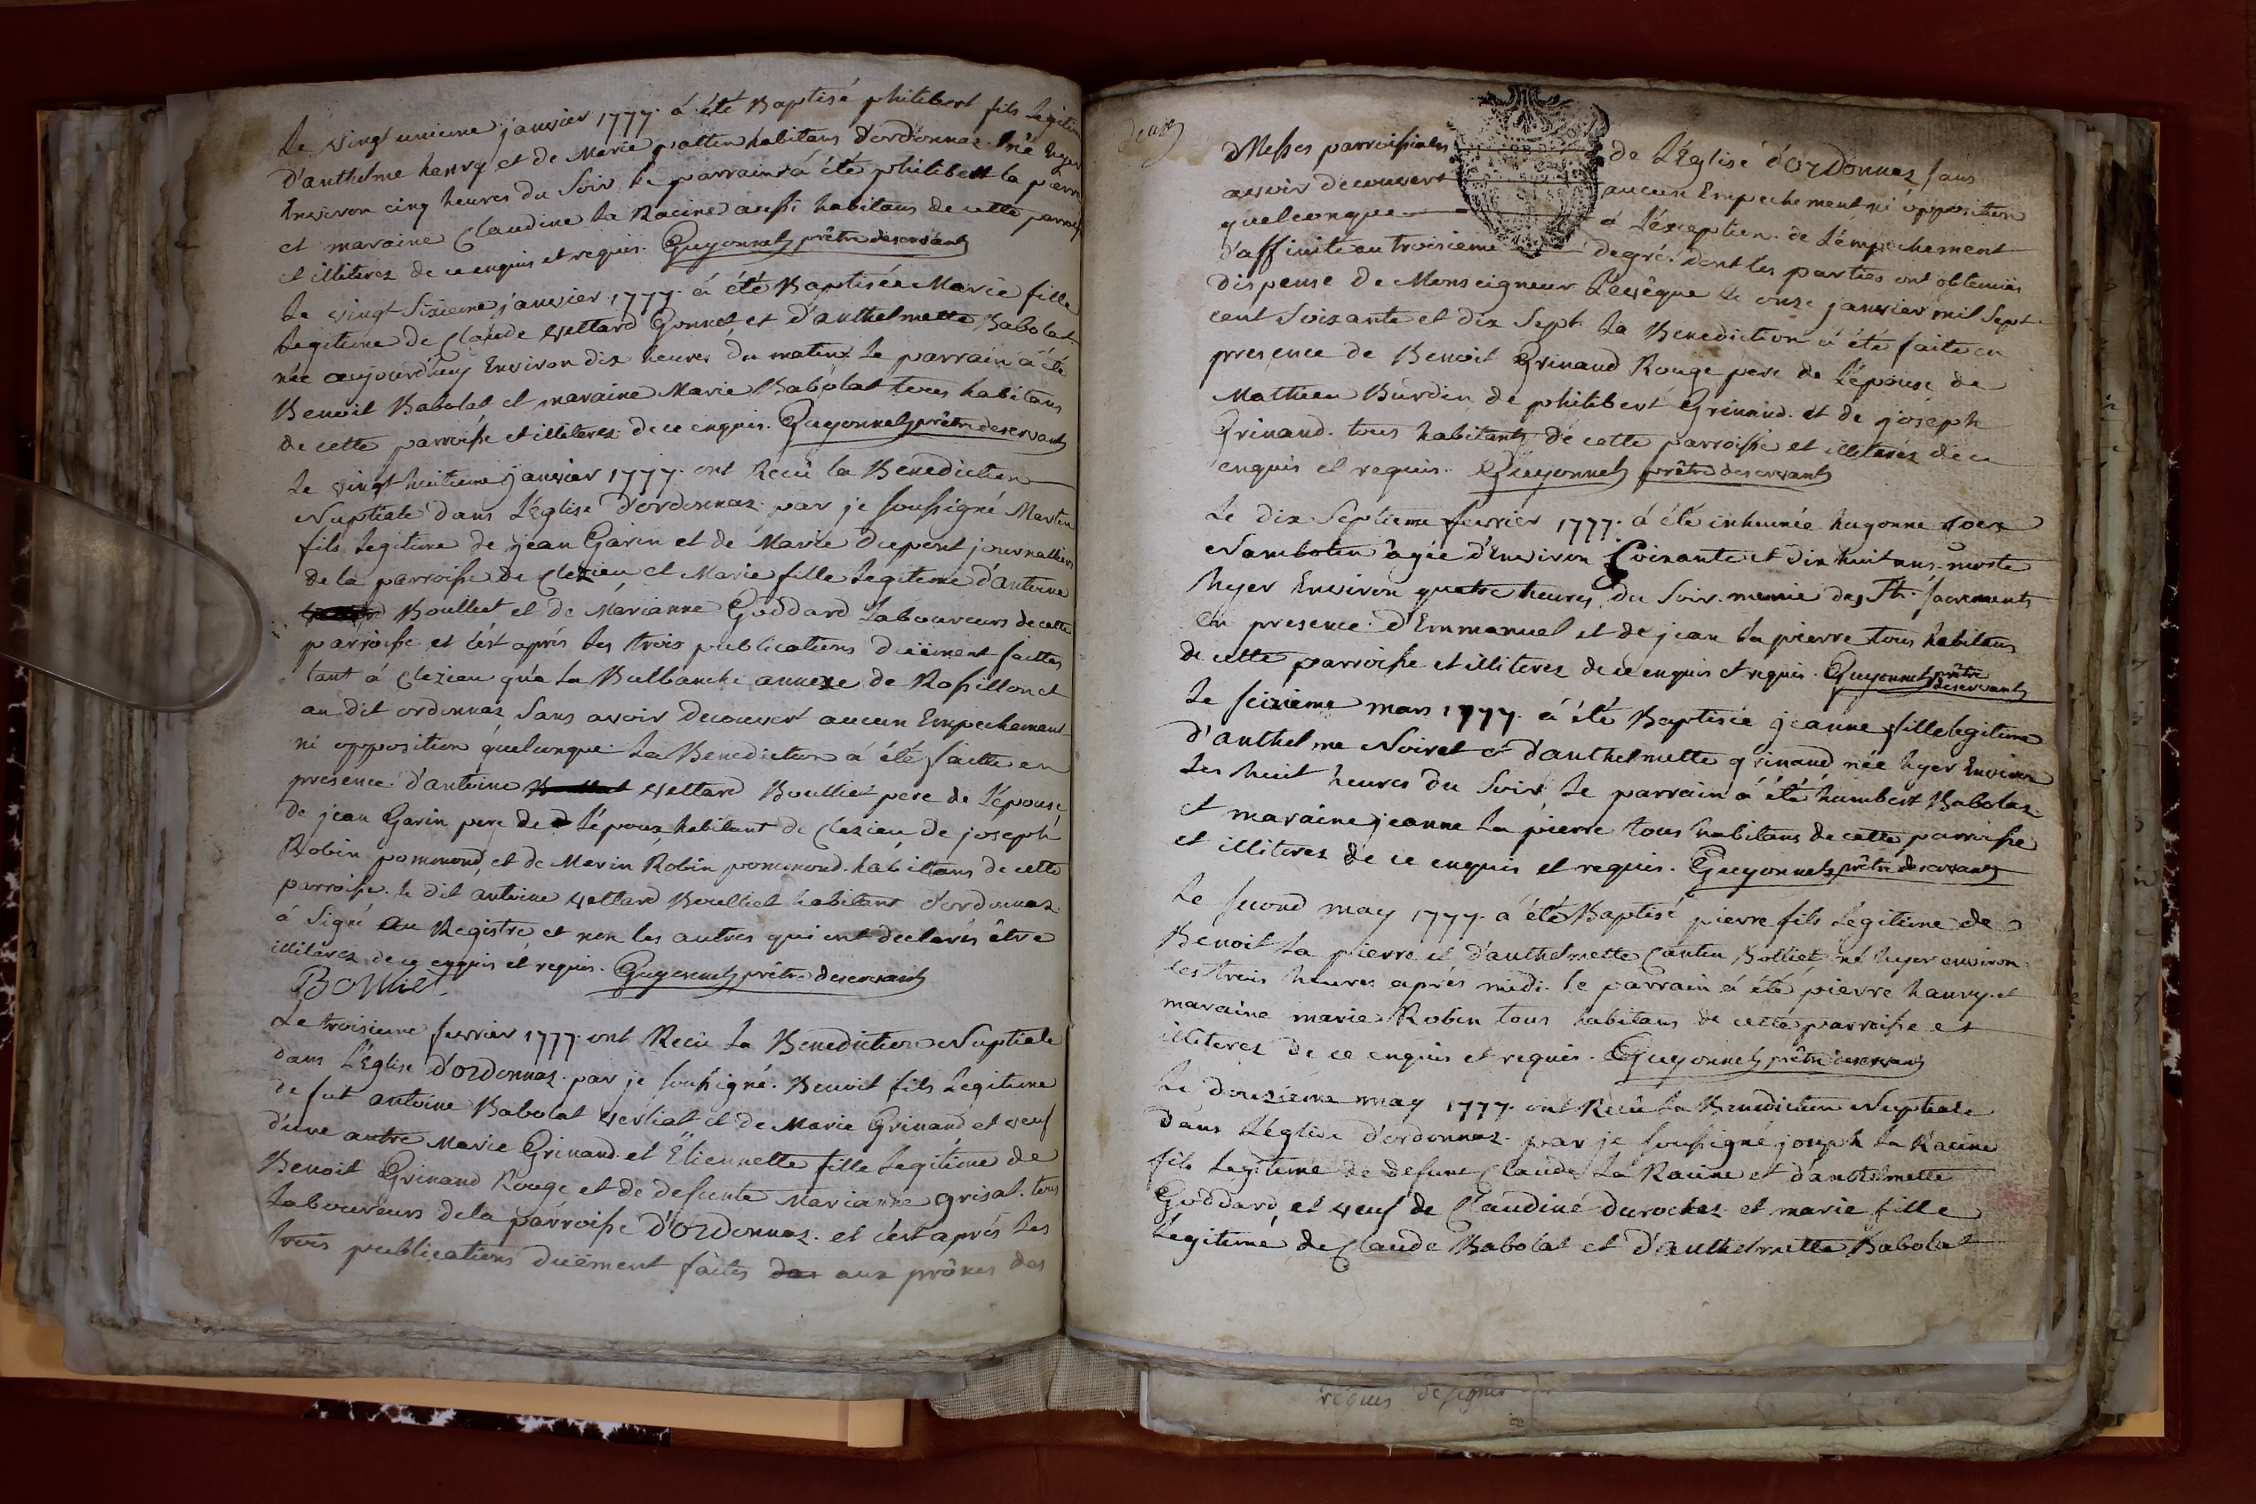 Le vingt unieme janvier 1777. á été Baptisé philibert fils Legitime
d'anthelme henry et de Marie patten habitans d'ordonnaz. né hyer
Environ cinq heures du soir le parrain á été philibert la pierre
et maraine Claudine la Racine aussi habitans de cette parroisse
et illiterez de ce enquis et requis. Guyonnet prêtre deservant
Le vingt sixieme janvier 1777. á été Baptisée Marie fille
Legitime de Claude vettard Gonnet et d'anthelmette Babolat
née aujourd'huy Environ dix heures du matin. Le parrain á été
Benoit Babolat et maraine Marie Babolat tous habitans
de cette parroisse et illiterez de ce enquis. Guyonnet prêtre deservant
Le vingt huitieme janvier 1777. ont Recû la Benediction
Nuptiale dans L'église d'ordonnaz. par je soussigné Martin
fils Legitime de jean Garin et de Marie Dupont journalliers
de la parroisse de Clezieu et Marie fille Legitime d'antoine
Boulliet et de Marianne Goddard Laboureurs de cette
parroisse et c'est aprés les trois publications duëment faittes
tant á Clezieu qu'a la Bulbanche annexe de Rossillon et
au dit ordonnaz sans avoir decouvert aucun Empechement
ni opposition quelconque. La Benediction á été faitte en
presence d'antoine vettard Boulliet pere de L'epouse
de jean Garin pere de L'époux habitant de Clezieu de joseph
Robin pommond, et de Marin Robin pommond. habitans de cette
parroisse. le dit antoine vettard Boulliet habitant d'ordonnaz
á signé au Registre et non les autres qui ont declarés être
illiterez de ce enquis et requis. Guyonnet prêtre deservant
Bolliet
Le troisieme fevrier 1777. ont Recû la Benediction Nuptiale
dans L'Eglise d'ordonnaz. par je soussigné. Benoit fils Legitime
de fut antoine Babolat vertiat et de Marie Grinand et veuf
d'une autre Marie Grinand. et Etiennette fille Legitime de
Benoit Grinand Rouge et de defunte Marianne Grisat. tous
Laboureurs de la parroisse d'ordonnaz. et c'est aprés les
trois publications duëment faites das aux prônes des
Messes parroissiales de L'Eglise d'ordonnaz sans
avoir decouvert aucun Empechement ni opposition
quelconque á L'exception. de L'émpechement
d'affinité au troisieme degré. dont les parties ont obtenuës
dispense de Monseigneur L'evêque le onze janvier mil sept
cent soixante et dix sept. La Benediction á été faite en
presence de Benoit Grinand Rouge pere de L'épouse de
Mathieu Burdin de philibert Grinand. et de joseph
Grinand. tous habitants de cette parroisse et illiterés de ce
enquis et requis. Guyonnet prêtre deservant
Le dix septieme fevrier 1777. á été inhumée hugonne
Nambotin âgée d'Environ soixante et dix huit ans. morte
hyer Environ quatre heures du soir. munie des Sts. sacrements
En presence. d'Emmanuel et de jean la pierre tous habitans
de cette parroisse et illiterez de ce enquis et requis. Guyonnet prêtre
deservant
Le seizieme mars 1777. á été Baptisée jeanne fille legitime
d'anthelme Noiret et d'anthelmette grinand née hyer Environ
les huit heures du soir. le parrain á été humbert Babolat
et maraine jeanne la pierre tous habitans de cette parroisse
et illiterez de ce enquis et requis. Guyonnet prêtre deservant
Le second may 1777. á été Baptisé pierre fils Legitime de
Benoit la pierre et d'anthelmette Cantin Bolliet né hyer environ
les trois heures aprés midi. le parrain á été pierre hanry. et
maraine marie Robin tous habitans de cette parroisse et
illiterez de ce enquis et requis. Guyonnet prêtre deservant
Le douzieme may 1777. ont Recû la Benediction Nuptiale
dans L'église d'ordonnaz. par je soussigné joseph la Racine
fils Legitime de defunt Claude La Racine et d'anthelmette
Goddard, et veuf de Claudine durochez et marie fille
Legitime de Claude Babolat et d'anthelmette Babolat
requis de signer